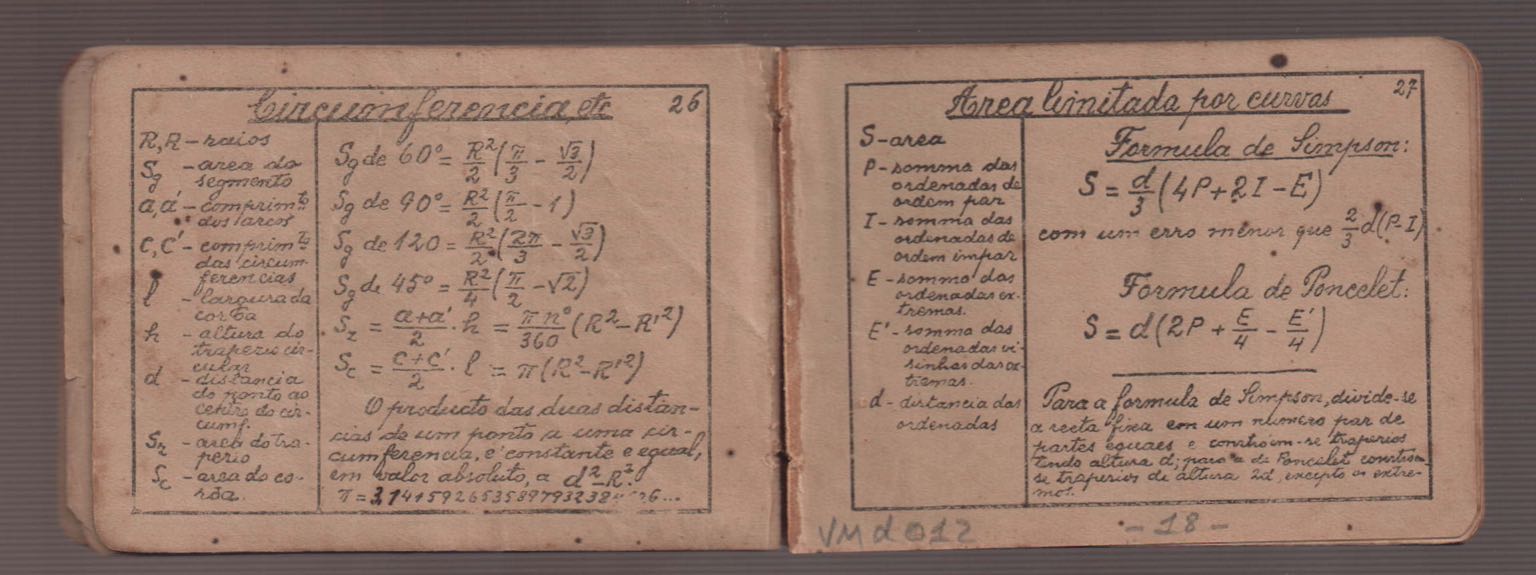 Circumferencia, etc 26
R, R - raios
Sg - area do
segmento
a, a' - comprim.to
dos arcos
c, c' - comprim.to
das circum-
ferencias
l - largura da
corôa
h - altura do
trapezio cir-
cular
d - distancia
do ponto ao
centro do cir-
cumf.
Sz - area do tra-
pezio
Sc - area da co-
rôa.
Sg de 60° = R²/2 (π/3 - √3/2)
Sg de 90° = R²/2 (π/2 - 1)
Sg de 120 = R²/2 (2π/3 - √3/2)
Sg de 45° = R²/4 (π/2 - √2)
Sz = a+a'/2 . h = π n°/360 (R² - R'²)
Sc = c+c'/2 . l = π (R² - R'²)
O producto das duas distan-
cias de um ponto a uma cir-
cumferencia, é constante e egual,
em valor absoluto, a d² - R².
π = 3,14159265358979323846...
Area limitada por curvas 27
S - area
P - somma das
ordenadas de
ordem par
I - somma das
ordenadas de
ordem impar
E - somma das
ordenadas ex-
tremas.
E' - somma das
ordenadas vi-
sinhas das ex-
tremas.
d - distancia das
ordenadas
Formula de Simpson:
S = d/3 (4P + 2I - E)
com um erro menor que 2/3 d (P-I)
Formula de Poncelet:
S = d (2P + E/4 - E'/4)
Para a formula de Simpson, divide-se
a recta fixa em um numero par de
partes eguaes e constróem-se trapezios
tendo altura d; para a de Poncelet constróem-
se trapezios de altura 2d, excepto os extre-
mos.
VMd012 -18-